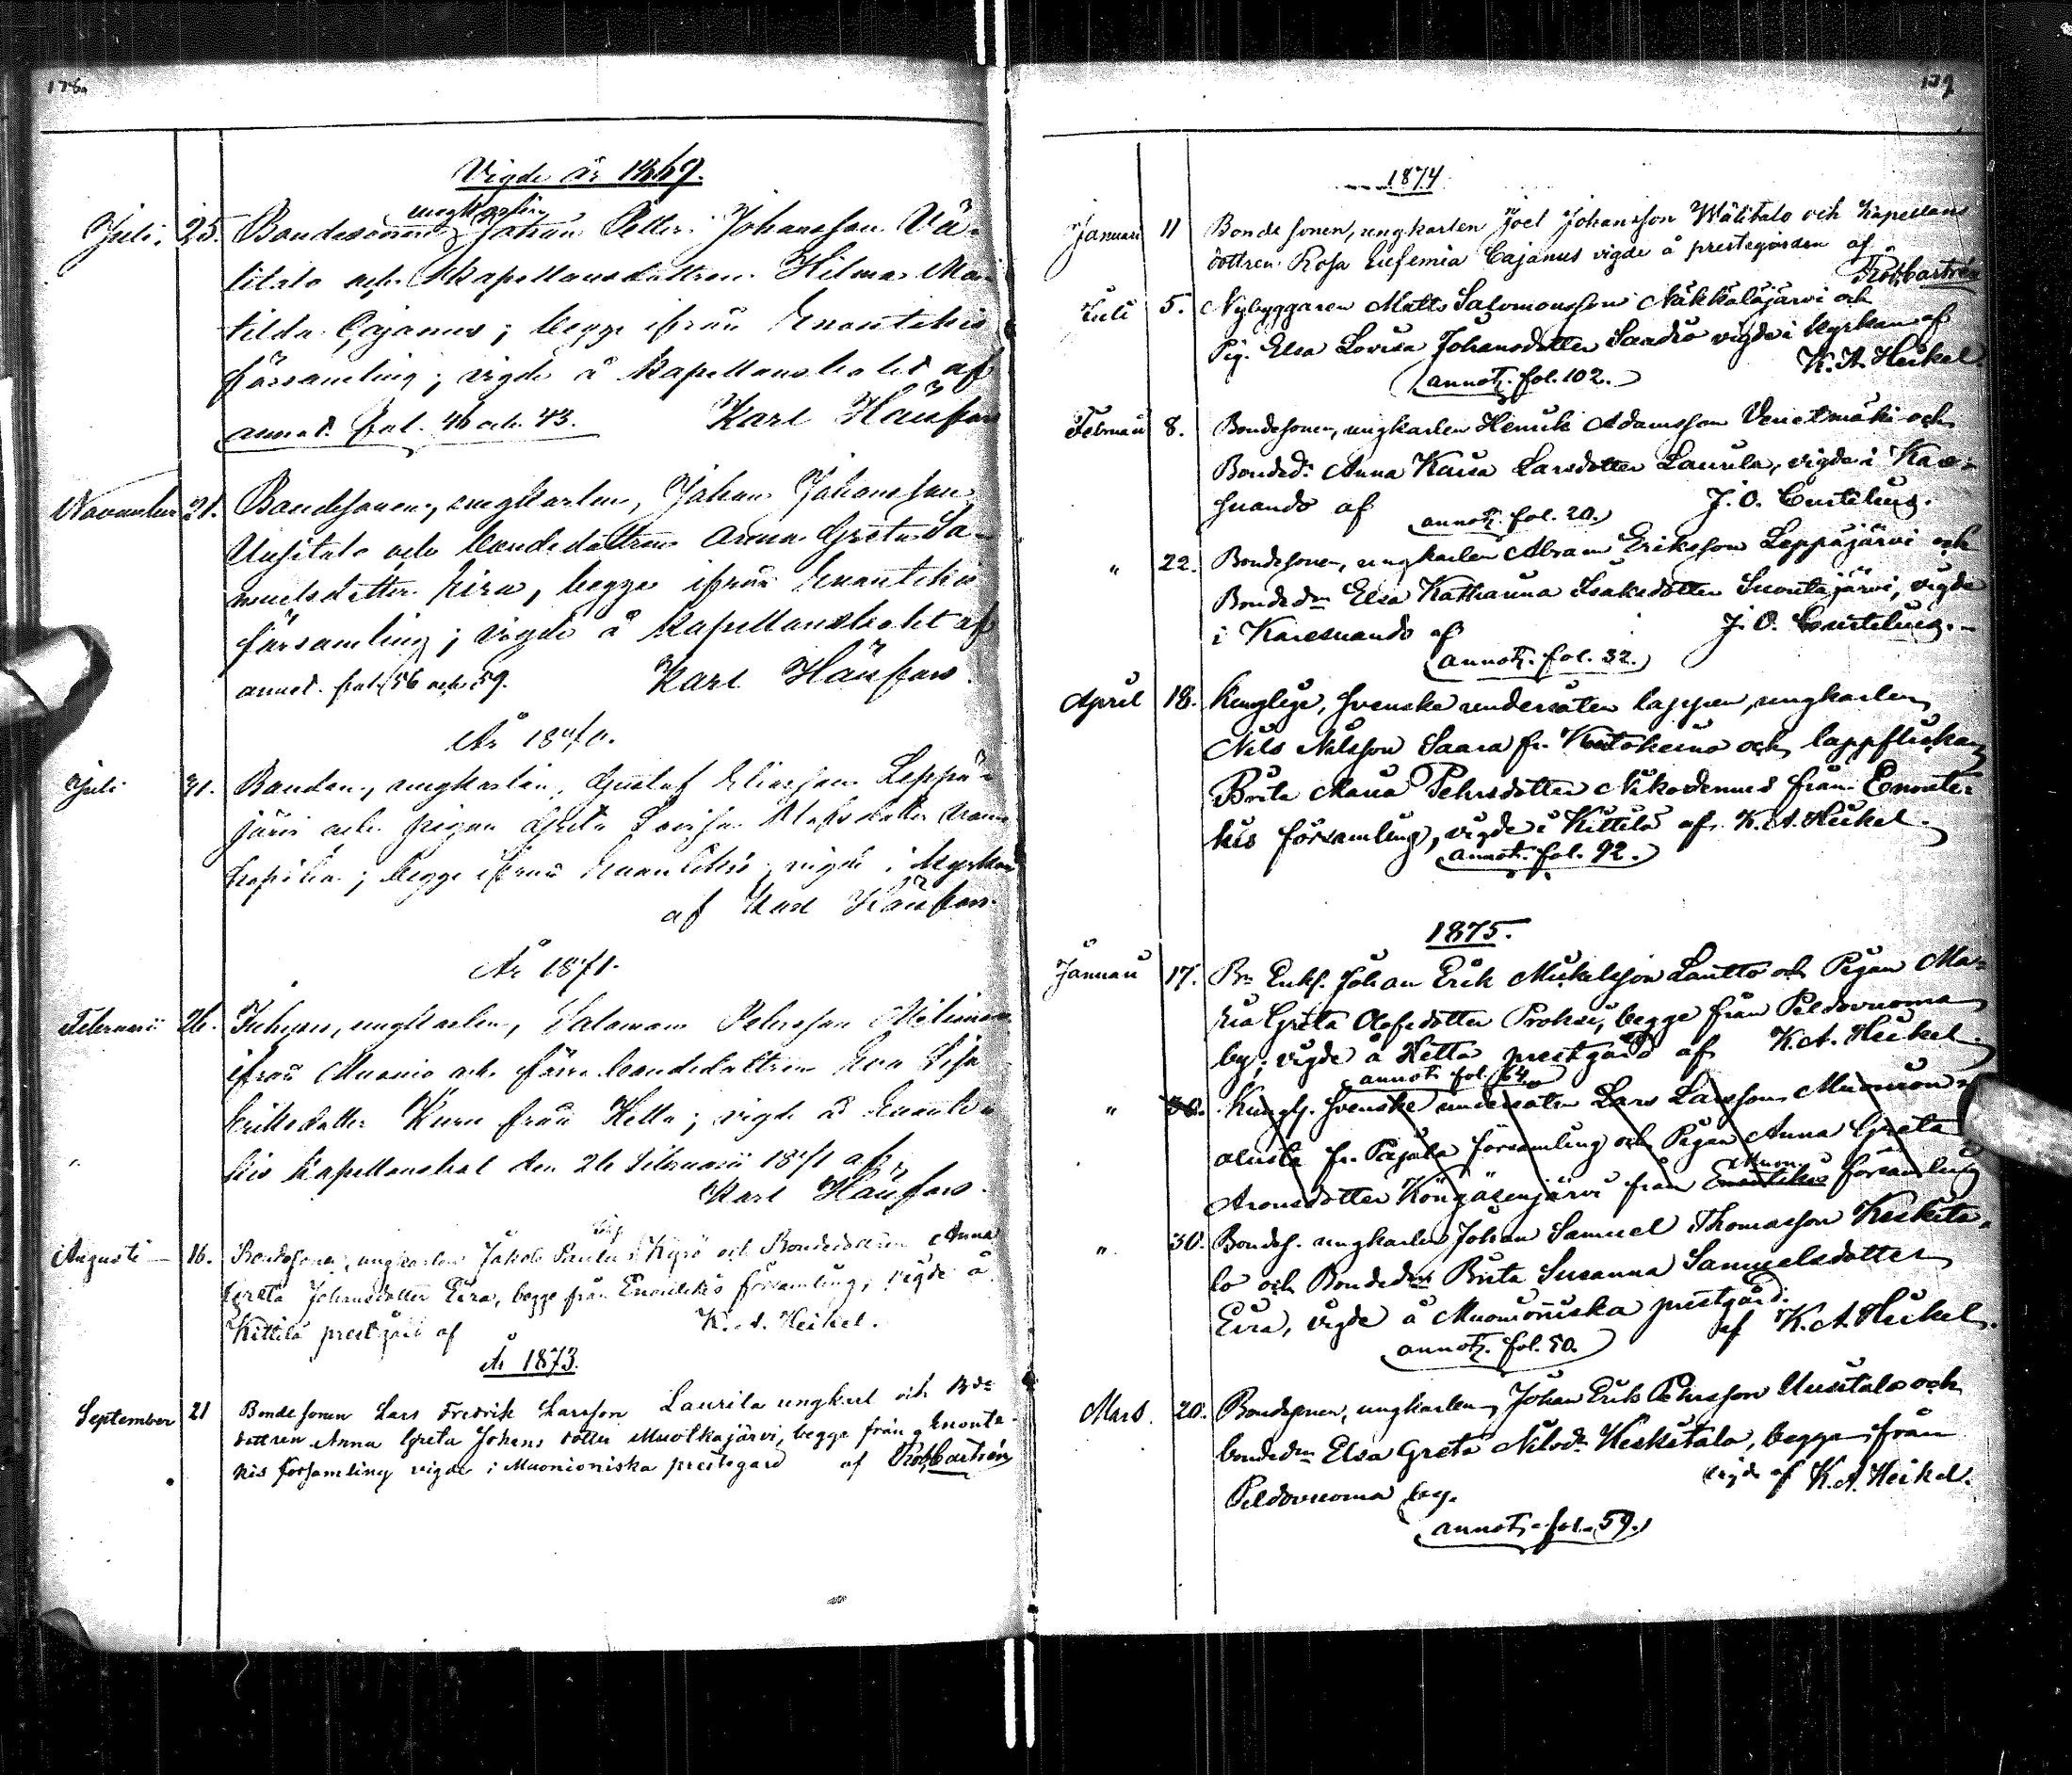 178.
Vigde år 1869.
ungkarlen
Juli. 25. Bondesonen, Johan Petter Johansson Vä-
litalo och Kapellansdottren Hilma Ma-
tilda Cajanus; begge ifrån Enontekis
församling; vigde å kapellansbolet af
annot. fol. 46 och 43. Karl Hänfors
November 21. Bondesonen, ungkarlen, Johan Johansson
Uusitalo och bondedottren Anna Greta Sa-
muelsdotter Eira, begge ifrån Enontekis
församling; vigde å kapellansbolet af
annot. fol. 56 och 59. Karl Hänfors.
År 1870.
Juli 31. Bonden, ungkarlen, Gustaf Eliasson Leppä-
järvi och pigan Greta Lovisa Olofsdotter
; begge ifrån Enontekis, vigde i kyrkan
af Karl Hänfors.
År 1871.
Februarii 26. ungkarlen, Salomon Pehrsson
ifrån Muonio och förre bondedottren Eva Lisa
Eriksdotter från Hetta; vigde å Enonte-
kis Kapellansbol den 26 Februarii 1871 af
Karl Hänfors.
Augusti 16. Bondesonen, ungkarlen Jakob Paulus Kyrö och Bondedottren Anna
Greta Johansdotter Eira, begge från Enontekis församling, vigde å
Kittilä prestgård af K. A. Heikel.
År 1873.
September 21 Bonde sonen Lars Fredrik Larsson Laurila ungkarl och Bde
dottren Anna Greta Johans dotter Muotkajärvi, begge från Enonte-
kis församling vigde i Muonioniska prestegård af Rob. Castrén
179
1874
Januari 11 Bonde sonen, ungkarlen Joel Johansson Wälitalo och Kapellans
dottren Rosa Eufemia Cajanus vigde å prestegården af
Rob. Castrén
Juli 5. Nybyggaren Matts Salomonsson Näkkäläjärvi och
Pig. Elsa Lovisa Johansdotter Saadio vigde i kyrkan af
annot. fol. 102. K. A. Heikel.
Februari 8. Bondesonen, ungkarlen Henrik Adamsson Venetmäki och
Bonded. Anna Kaisa Larsdotter Laurila, vigde i Kare-
suando af annot. fol. 20. J. O. Curtelius.
" 22. Bondesonen, ungkarlen Abram Eriksson Leppäjärvi och
Bondedn Elsa Katharina Isaksdotter Suontajärvi, vigde
i Karesuando af J. O. Curtelius.
annot. fol. 32.
April 18. Kunglige, svenske undersåten lappen, ungkarlen
Nils Nilsson Saara fr. Koutokeino och lappflickan
Brita Maria Pehrsdotter Nikodemus från Enonte-
kis församling, vigde i Kittilä af K. A. Heikel.
annot. fol. 92.
1875.
Januari 17. Bn Enkl. Johan Erik Mickelsson Lautto och Pigan Ma-
ria Greta Olofsdotter Proksi, begge från Peldovuoma
by; vigde å Hetta prestgård af K. A. Heikel
annot. fol. 64.
" 30. Kungl. svenske undersåten Lars Larsson Muonion-
alusta fr. Pajala församling och Pigan Anna Greta
Aronsdotter Köngäsenjärvi från Enontekis församling
" 30. Bondes. ungkarlen Johan Samuel Thomasson Keskita-
lo och Bondedn Brita Susanna Samuelsdotter
Eira, vigde å Muonioniska prestgård.
annot. fol. 50. af K. A. Heikel.
Mars. 20. Bondesonen, ungkarlen, Johan Erik Pehrsson Uusitalo och
bondedn Elsa Greta Nilsdr Keskitalo, begge ifrån
Peldovuoma by. vigde af K. A. Heikel.
annot. fol. 59.